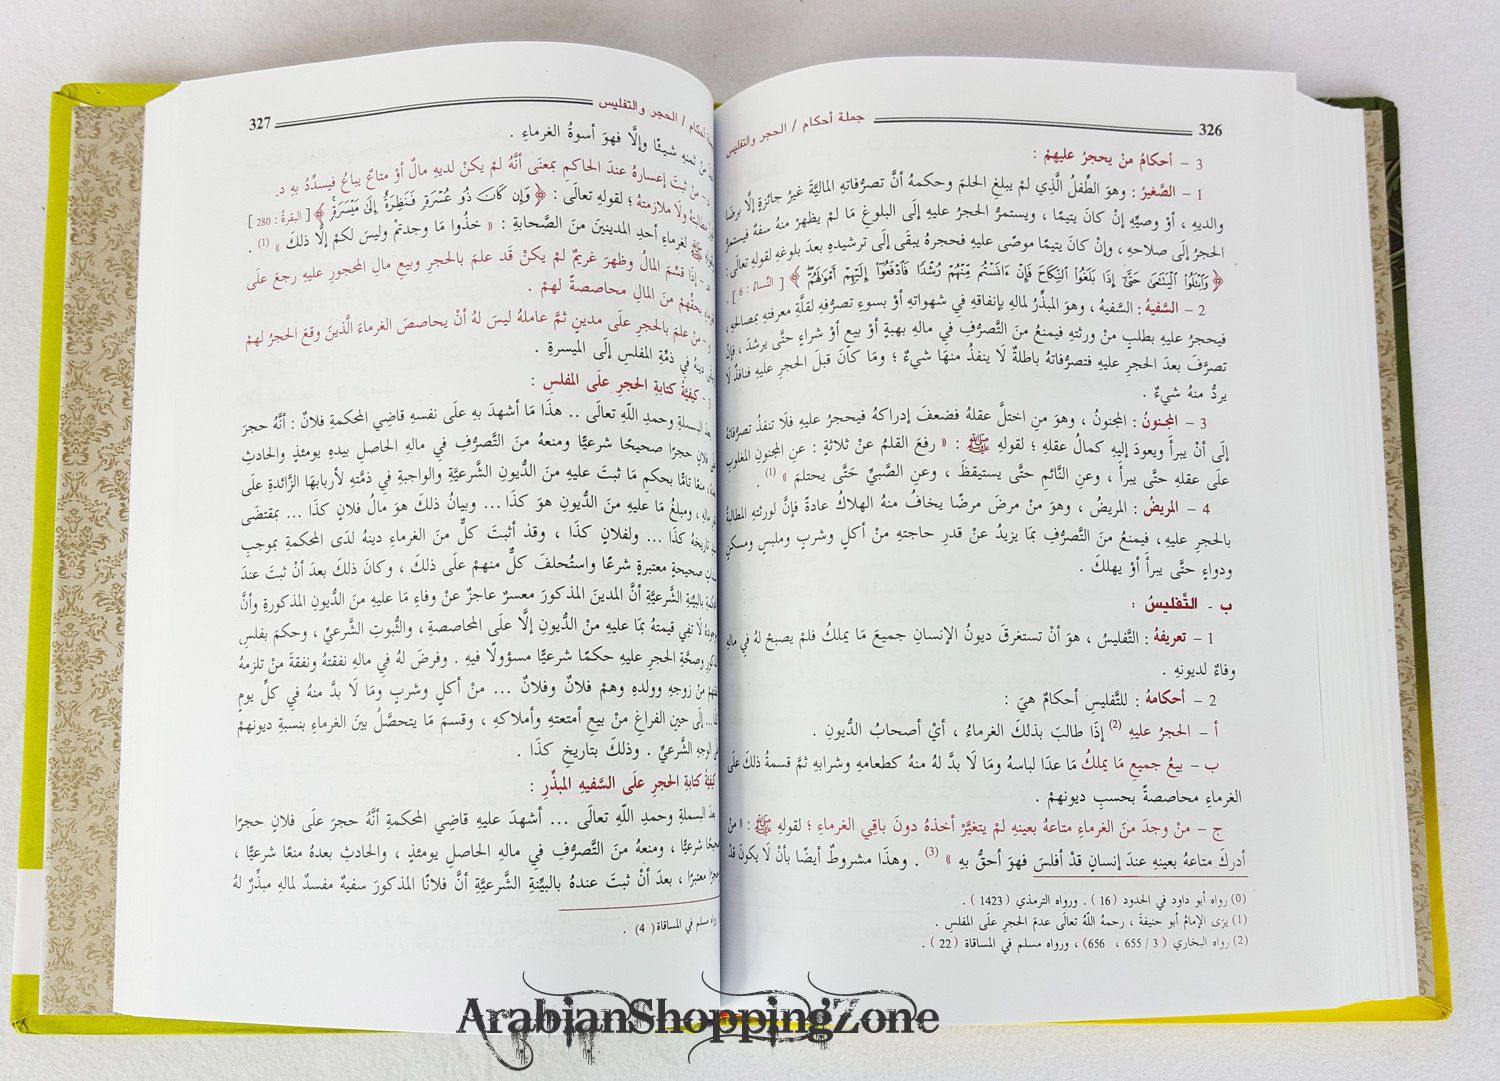 326
جملة أحكام / الحجر والتفليس
3 – أحكامُ منْ يحجرُ عليهمْ :
1 – الصَّغيرُ : وهوَ الطِّفلُ الَّذِي لمْ يبلغِ الحلمَ وحكمهُ أنَّ تصرُّفاتهِ الماليَّةَ غيرُ جائزةٍ إلَّا برضَا
والديهِ ، أوْ وصيِّهِ إنْ كانَ يتيمًا ، ويستمرُّ الحجرُ عليهِ إلَى البلوغِ مَا لمْ يظهرْ منهُ سفهٌ فيستمرُّ
الحجرُ إلَى صلاحهِ ، وإنْ كانَ يتيمًا موصًى عليهِ فحجرهُ يبقَى إلَى ترشيدهِ بعدَ بلوغهِ لقولهِ تعالَى :
﴿ وَٱبْتَلُوا۟ ٱلْيَتَٰمَىٰ حَتَّىٰٓ إِذَا بَلَغُوا۟ ٱلنِّكَاحَ فَإِنْ ءَانَسْتُم مِّنْهُمْ رُشْدًا فَٱدْفَعُوٓا۟ إِلَيْهِمْ أَمْوَٰلَهُمْ ﴾ [ النِّساءُ : 6 ] .
2 – السَّفيهُ : السَّفيهُ ، وهوَ المبذِّرُ لمالهِ بإنفاقهِ في شهواتهِ أوْ بسوءِ تصرُّفهِ لقلَّةِ معرفتهِ بمصالحهِ ،
فيحجرُ عليهِ بطلبٍ منْ ورثتهِ فيمنعُ منَ التَّصرُّفِ في مالهِ بهبةٍ أوْ بيعٍ أوْ شراءٍ حتَّى يرشدَ ، فإنْ
تصرَّفَ بعدَ الحجرِ عليهِ فتصرُّفاتهُ باطلةٌ لَا ينفذُ منهَا شيءٌ ؛ ومَا كانَ قبلَ الحجرِ عليهِ فنافذٌ لَا
يردُّ منهُ شيءٌ .
3 – المجنونُ : المجنونُ ، وهوَ منِ اختلَّ عقلهُ فضعفَ إدراكهُ فيحجرُ عليهِ فلَا تنفذُ تصرُّفاتهُ
إلَى أنْ يبرأَ ويعودَ إليهِ كمالُ عقلهِ ؛ لقولهِ ﷺ : « رفعَ القلمُ عنْ ثلاثةٍ : عنِ المجنونِ المغلوبِ
علَى عقلهِ حتَّى يبرأَ ، وعنِ النَّائمِ حتَّى يستيقظَ ، وعنِ الصَّبيِّ حتَّى يحتلمَ » (1) .
4 – المريضُ : المريضُ ، وهوَ منْ مرضَ مرضًا يخافُ منهُ الهلاكُ عادةً فإنَّ لورثتهِ المطالبةَ
بالحجرِ عليهِ ، فيمنعُ منَ التَّصرُّفِ بمَا يزيدُ عنْ قدرِ حاجتهِ منْ أكلٍ وشربٍ وملبسٍ ومسكنٍ
ودواءٍ حتَّى يبرأَ أوْ يهلكَ .
ب - التَّفليسُ :
1 – تعريفهُ : التَّفليسُ ، هوَ أنْ تستغرقَ ديونُ الإنسانِ جميعَ مَا يملكُ فلمْ يصبحْ لهُ في مالهِ
وفاءٌ لديونهِ .
2 – أحكامهُ : للتَّفليسِ أحكامٌ هيَ :
أ – الحجرُ عليهِ (2) إذَا طالبَ بذلكَ الغرماءُ ، أيْ أصحابُ الدُّيونِ .
ب – بيعُ جميعِ مَا يملكُ مَا عدَا لباسهُ ومَا لَا بدَّ لهُ منهُ كطعامهِ وشرابهِ ثمَّ قسمةُ ذلكَ علَى
الغرماءِ محاصصةً بحسبِ ديونهمْ .
ج – منْ وجدَ منَ الغرماءِ متاعهُ بعينهِ لمْ يتغيَّرْ أخذهُ دونَ باقِي الغرماءِ ؛ لقولهِ ﷺ : « منْ
أدركَ متاعهُ بعينهِ عندَ إنسانٍ قدْ أفلسَ فهوَ أحقُّ بهِ » (3) . وهذَا مشروطٌ أيضًا بأنْ لَا يكونَ قدْ
(0) رواه أبو داود في الحدود ( 16 ) . ورواه الترمذي ( 1423 ) .
(1) يرَى الإمامُ أبو حنيفةَ ، رحمهُ اللَّهُ تعالَى عدمَ الحجرِ علَى المفلسِ .
(2) رواه البخاري ( 3 / 655 ، 656 ) ، ورواه مسلم في المساقاة ( 22 ) .
أحكام / الحجر والتفليس
327
منْ ثمنهِ شيئًا وإلَّا فهوَ أسوةُ الغرماءِ .
– منْ ثبتَ إعسارهُ عندَ الحاكمِ بمعنَى أنَّهُ لمْ يكنْ لديهِ مالٌ أوْ متاعٌ يباعُ فيسدِّدُ بهِ
مطالبتهُ ولَا ملازمتهُ ؛ لقولهِ تعالَى : ﴿ وَإِن كَانَ ذُو عُسْرَةٍ فَنَظِرَةٌ إِلَىٰ مَيْسَرَةٍ ﴾ [ البقرةُ : 280 ]
ﷺ لغرماءِ أحدِ المدينينَ منَ الصَّحابةِ : « خذُوا مَا وجدتمْ وليسَ لكمْ إلَّا ذلكَ » (1) .
– إذَا قسِّمَ المالُ وظهرَ غريمٌ لمْ يكنْ قدْ علمَ بالحجرِ وبيعِ مالِ المحجورِ عليهِ رجعَ علَى
بحقِّهمْ منَ المالِ محاصصةً لهمْ .
– منْ علمَ بالحجرِ علَى مدينٍ ثمَّ عاملهُ ليسَ لهُ أنْ يحاصصَ الغرماءَ الَّذينَ وقعَ الحجرُ لهمْ
دينهُ في ذمَّةِ المفلسِ إلَى الميسرةِ .
– كيفيَّةُ كتابةِ الحجرِ علَى المفلسِ :
بعدَ البسملةِ وحمدِ اللَّهِ تعالَى .. هذَا مَا أشهدَ بهِ علَى نفسهِ قاضِي المحكمةِ فلانٌ : أنَّهُ حجرَ
فلانٍ حجرًا صحيحًا شرعيًّا ومنعهُ منَ التَّصرُّفِ في مالهِ الحاصلِ بيدهِ يومئذٍ والحادثِ
منعًا تامًّا بحكمِ مَا ثبتَ عليهِ منَ الدُّيونِ الشَّرعيَّةِ والواجبةِ في ذمَّتهِ لأربابهَا الزَّائدةِ علَى
مالهِ ، ومبلغُ مَا عليهِ منَ الدُّيونِ هوَ كذَا ... وبيانُ ذلكَ هوَ مالُ فلانٍ كذَا ... بمقتضَى
تاريخهُ كذَا ... ولفلانٍ كذَا ، وقدْ أثبتَ كلٌّ منَ الغرماءِ دينهُ لدَى المحكمةِ بموجبِ
صحيحةٍ معتبرةٍ شرعًا واستُحلفَ كلٌّ منهمْ علَى ذلكَ ، وكانَ ذلكَ بعدَ أنْ ثبتَ عندَ
بالبيِّنةِ الشَّرعيَّةِ أنَّ المدينَ المذكورَ معسرٌ عاجزٌ عنْ وفاءِ مَا عليهِ منَ الدُّيونِ المذكورةِ وأنَّ
لَا تفِي قيمتهُ بمَا عليهِ منَ الدُّيونِ إلَّا علَى المحاصصةِ ، والثُّبوتِ الشَّرعيِّ ، وحكمَ بفلسِ
وصحَّةِ الحجرِ عليهِ حكمًا شرعيًّا مسؤولًا فيهِ . وفرضَ لهُ في مالهِ نفقتهُ ونفقةَ منْ تلزمهُ
منْ زوجهِ وولدهِ وهمْ فلانٌ وفلانٌ ... منْ أكلٍ وشربٍ ومَا لَا بدَّ منهُ في كلِّ يومٍ
... إلَى حينِ الفراغِ منْ بيعِ أمتعتهِ وأملاكهِ ، وقسمَ مَا يتحصَّلُ بينَ الغرماءِ بنسبةِ ديونهمْ
الوجهِ الشَّرعيِّ . وذلكَ بتاريخِ كذَا .
كيفيَّةُ كتابةِ الحجرِ علَى السَّفيهِ المبذِّرِ :
بعدَ البسملةِ وحمدِ اللَّهِ تعالَى ... أشهدَ عليهِ قاضِي المحكمةِ أنَّهُ حجرَ علَى فلانٍ حجرًا
صحيحًا شرعيًّا ، ومنعهُ منَ التَّصرُّفِ في مالهِ الحاصلِ يومئذٍ ، والحادثِ بعدهُ منعًا شرعيًّا ،
حجرًا معتبرًا ، بعدَ أنْ ثبتَ عندهُ بالبيِّنةِ الشَّرعيَّةِ أنَّ فلانًا المذكورَ سفيهٌ مفسدٌ لمالهِ مبذِّرٌ لهُ
رواه مسلم في المساقاة ( 4 ) .
ArabianShoppingZone